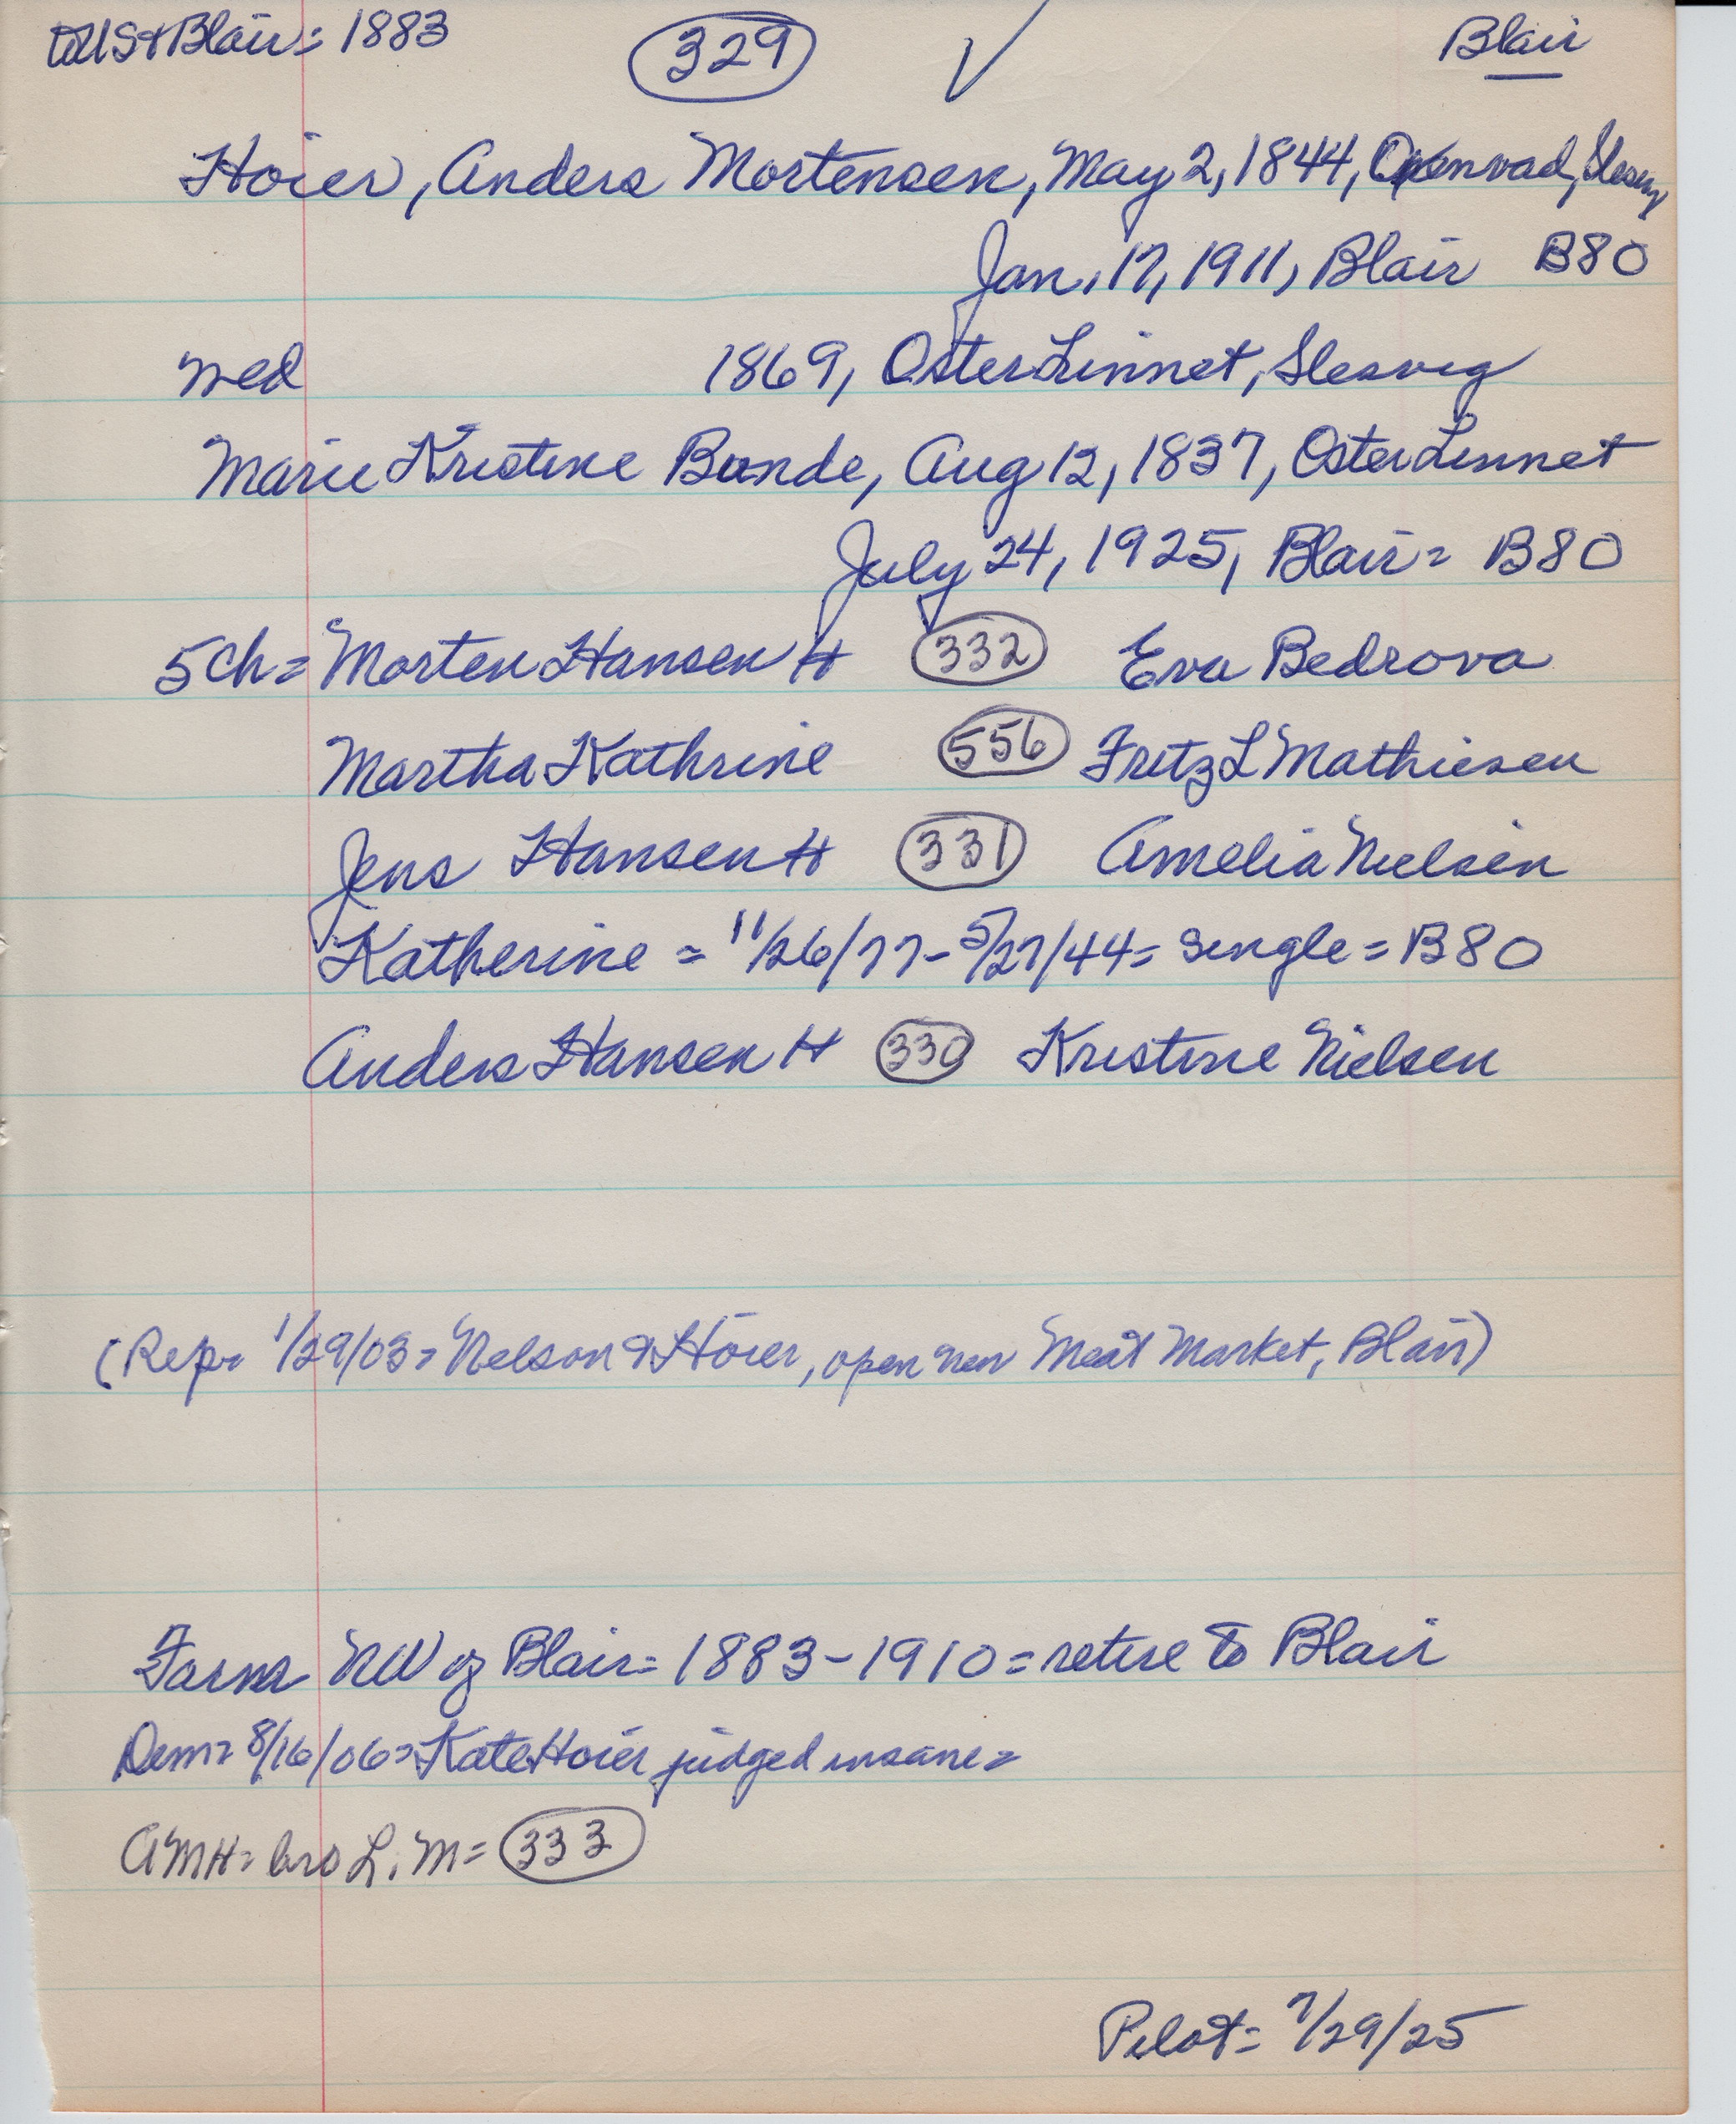 to US & Blair = 1883 329 ✓ Blair
Hoier, Anders Mortensen, May 2, 1844, Openrad, Slesvig
Jan. 17, 1911, Blair B80
wed 1869, Oster Linnet, Slesvig
Marie Kristine Bunde, Aug 12, 1837, Oster Linnet
July 24, 1925, Blair = B80
5 ch = Morten Hansen H 332 Eva Bedrova
Martha Kathrine 556 Fritz L Mathiesen
Jens Hansen H 331 Amelia Nielsen
Katherine = 11/26/77 - 5/27/44 = single = B80
Anders Hansen H 330 Kristine Nielsen
(Rep = 1/29/03 = Nelson & Hoier, open new Meat Market, Blair)
Farm NW of Blair = 1883 - 1910 = retire to Blair
Dem = 8/16/06 = Kate Hoier judged insane =
AMH = bro L. M = 333
Pilot = 7/29/25